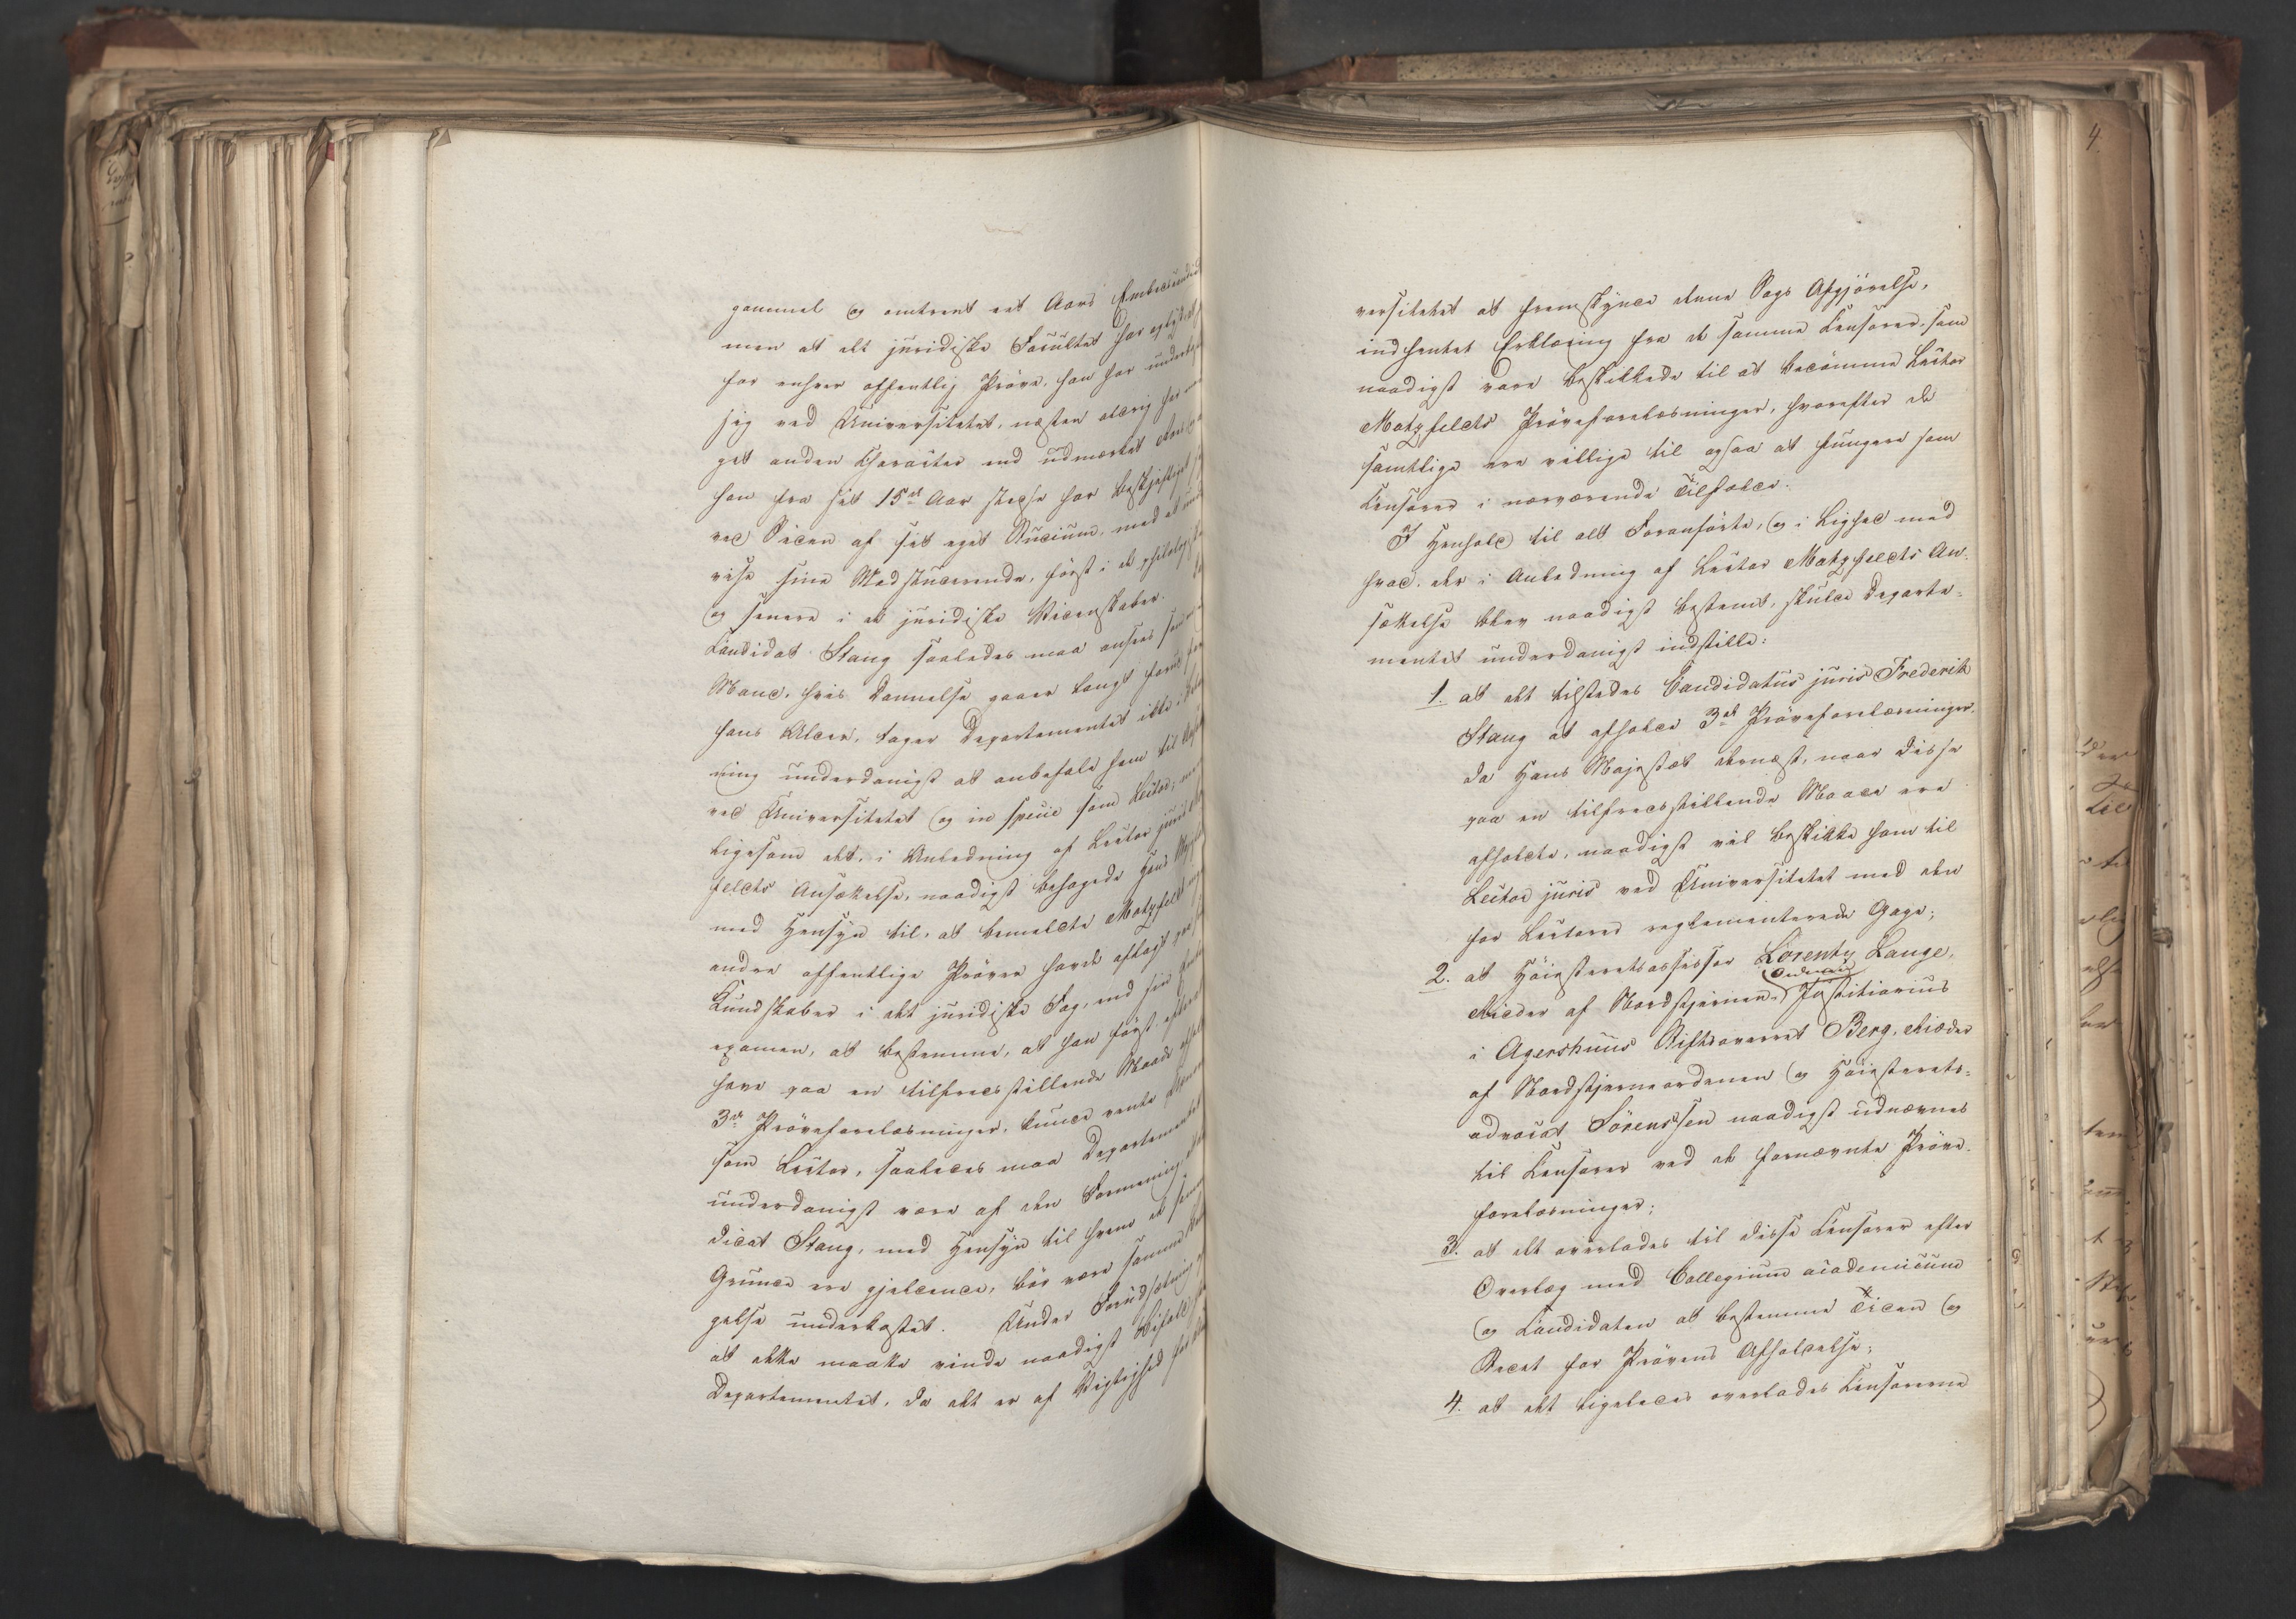 gammel og omtrent eet Aars
men at det juridiske Facultet har
for enhver offentlig Prøve, han har
sig ved Universitetet, næsten aldrig har
get anden Character end udmærket
han fra sit 15de Aar stedse har beskjæftiget
ved Siden af sit eget Studium, med at
vise sine Medstuderende, først i de
og senere i de juridiske Videnskaber.
Candidat Stang saaledes maa ansees som
Mand, hvis Dannelse gaaer langt forud for
hans Alder, tager Departementet ikke i
ning underdanigst at anbefale ham til
ved Universitetet og in specie som Lector,
ligesom det, i Anledning af Lector juris
feldts Ansøkelse, naadigst behagede Hans
med Hensyn til, at bemeldte Motzfeldt
andre offentlige Prøver havde aflagt paa
Kundskaber i det juridiske Fag, end sin
examen, at bestemme, at han først efter at
have paa en tilfredsstillende Maade
3de Prøveforelæsninger, kunde vente
som Lector, saaledes maa Departementet
underdanigst være af den Formening,
didat Stang, med Hensyn til hvem de samme
Grunde ere gjeldende, bør være samme
gelse underkastet. Under Forudsætning
at dette maatte vinde naadigst Bifald
Departementet, da det er af Vigtighed for
versitetet at fremskynde denne Sags Afgjörelse,
indhentet Erklæring fra de samme Censorer, som
naadigst vare beskikkede til at bedömme Lector
Motzfeldts Pröveforelæsninger, hvorefter de
samtlige ere villige til ogsaa at fungere som
Censorer i nærværende Tilfælde.
I Henhold til alt Foranförte, og i Lighed med
hvad, der i Anledning af Lector Motzfeldts An-
søkelse blev naadigst bestemt, skulde Departe-
mentet underdanigst indstille:
1. at det tilstedes Candidatus juris Frederik
Stang at afholde 3de Pröveforelæsninger,
da Hans Majestæt dernæst, naar disse
paa en tilfredsstillende Maade ere
afholdte, naadigst vil beskikke ham til
Lector juris ved Universitetet med den
for Lectorer reglementerede Gage;
2. at Höiesteretsassessor Lorentz Lange,
Ridder af Nordstjerne-Ordenen, Justitiarius
i Agershuus Stiftsoverret Berg, Ridder
af Nordstjerneordenen og Höiesterets-
advocat Sörenssen naadigst udnævnes
til Censorer ved de fornævnte Pröve-
forelæsninger;
3. at det overlades til disse Censorer efter
Overlæg med Collegium academicum
og Candidaten at bestemme Tiden og
Stedet for Prövens Afholdelse;
4. at det ligeledes overlades Censorerne
4.